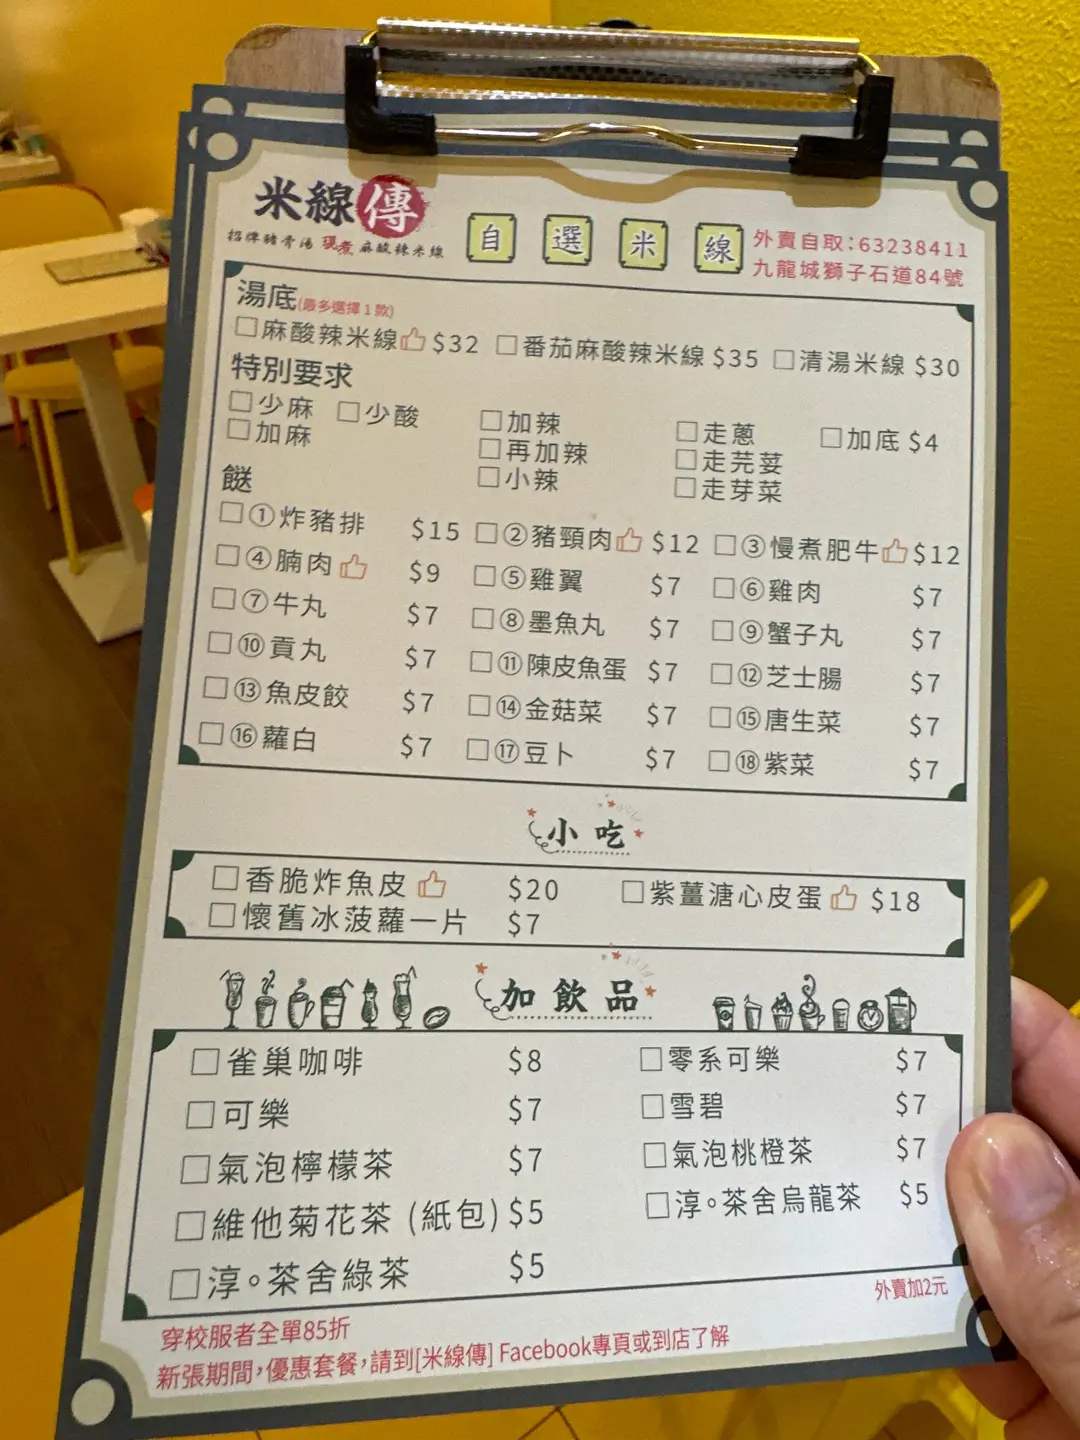 米線傳
招牌豬骨湯 現煮 麻酸辣米線
自選米線
外賣自取：63238411
九龍城獅子石道84號
湯底(最多選擇 1 款)
□麻酸辣米線 $32 □番茄麻酸辣米線 $35 □清湯米線 $30
特別要求
□少麻 □少酸 □加辣 □走蔥 □加底 $4
□加麻 □再加辣 □走芫荽
□小辣 □走芽菜
餸
□①炸豬排 $15 □②豬頸肉 $12 □③慢煮肥牛 $12
□④腩肉 $9 □⑤雞翼 $7 □⑥雞肉 $7
□⑦牛丸 $7 □⑧墨魚丸 $7 □⑨蟹子丸 $7
□⑩貢丸 $7 □⑪陳皮魚蛋 $7 □⑫芝士腸 $7
□⑬魚皮餃 $7 □⑭金菇菜 $7 □⑮唐生菜 $7
□⑯蘿白 $7 □⑰豆卜 $7 □⑱紫菜 $7
小吃
□香脆炸魚皮 $20 □紫薑溏心皮蛋 $18
□懷舊冰菠蘿一片 $7
加飲品
□雀巢咖啡 $8 □零系可樂 $7
□可樂 $7 □雪碧 $7
□氣泡檸檬茶 $7 □氣泡桃橙茶 $7
□維他菊花茶 (紙包) $5 □淳。茶舍烏龍茶 $5
□淳。茶舍綠茶 $5
外賣加2元
穿校服者全單85折
新張期間，優惠套餐，請到[米線傳] Facebook專頁或到店了解